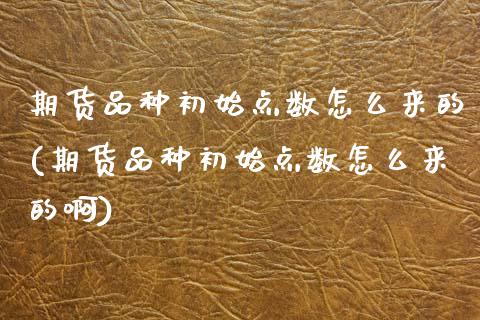 期货品种初始点数怎么来的
(期货品种初始点数怎么来
的啊)